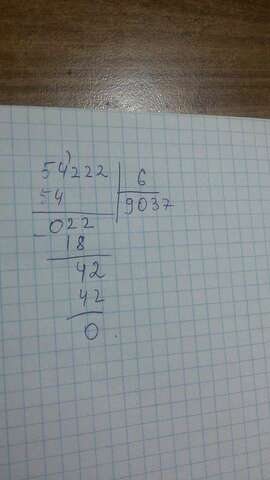 54222 | 6
54 | 9037
- 022
18
42
42
0